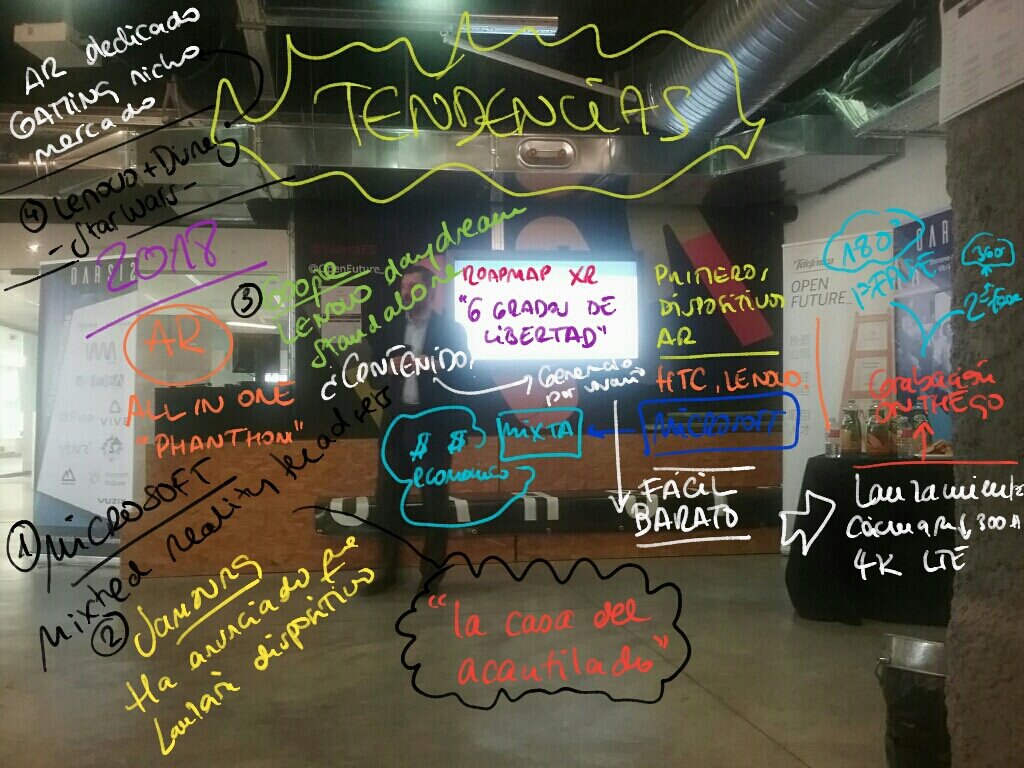 TENDENCIAS
AR dedicado
GAMING nicho
mercado
④ Lenovo + Disney
- Star Wars -
2018
AR
ALL IN ONE
"PHANTHOM"
③ Google
Lenovo daydream
standalone
ROADMAP XR
"6 GRADOS DE
LIBERTAD"
PRIMEROS
DISPOSITIVOS
AR
HTC, LENOVO,
MICROSOFT
MIXTA
$ $
economico
¿CONTENIDO?
Generado
por usuario
FÁCIL
BARATO
Lanzamiento
4K LTE
Grabación
ON THE GO
180º
1ª FASE
360º
2ª fase
① MICROSOFT
Mixted reality headress
② Samsung
Ha anunciado que
lanzará dispositivo
"la casa del
acantilado"
Telefónica
OPEN
FUTURE_
@OpenFuture_